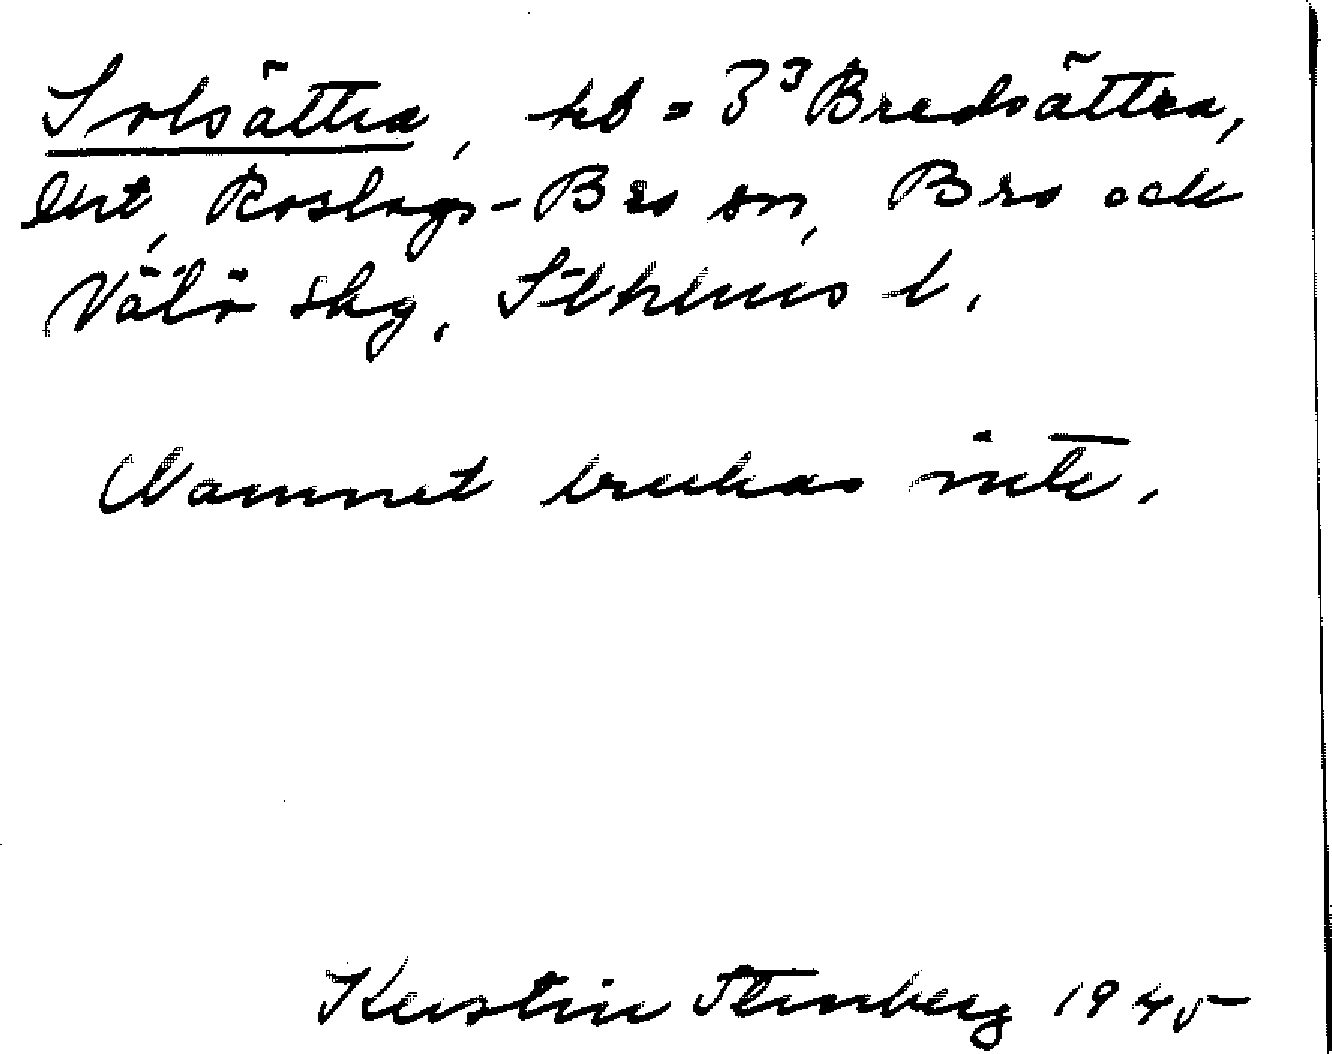 Solsättra, hd = 3³ Bredsättra,
Roslags-Bro sn, Bro och
Väto skg, Sthlms l.
Namnet brukas inte.
Kerstin Stenberg 1945